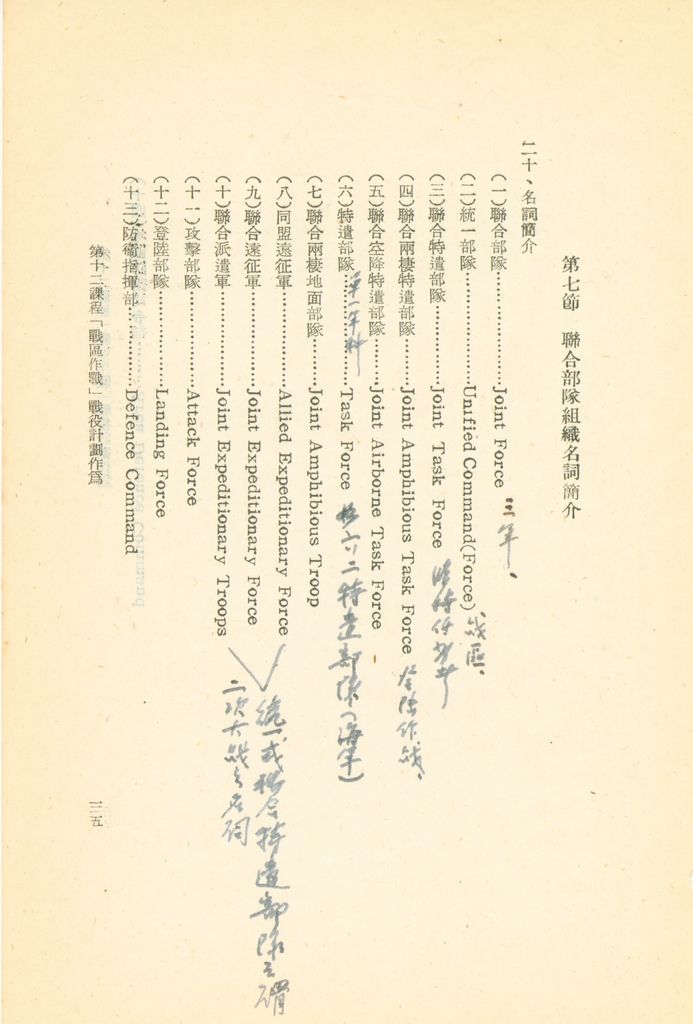 第七節　聯合部隊組織名詞簡介
二十、名詞簡介
(一)聯合部隊…………Joint Force 三年、
(二)統一部隊…………Unified Command(Force)、战區、
(三)聯合特遣部隊…………Joint Task Force
(四)聯合兩棲特遣部隊………Joint Amphibious Task Force 作战、
(五)聯合空降特遣部隊………Joint Airborne Task Force
(六)特遣部隊…………Task Force 六二特遣部隊(海軍)
單一軍種
(七)聯合兩棲地面部隊………Joint Amphibious Troop
(八)同盟遠征軍…………Allied Expeditionary Force
(九)聯合遠征軍…………Joint Expeditionary Force
統一或聯合特遣部隊之謂
(十)聯合派遣軍…………Joint Expeditionary Troops
二次大战之名詞
(十一)攻擊部隊…………Attack Force
(十二)登陸部隊…………Landing Force
(十三)防衛指揮部…………Defence Command
第十二課程「戰區作戰」戰役計劃作爲
一二五